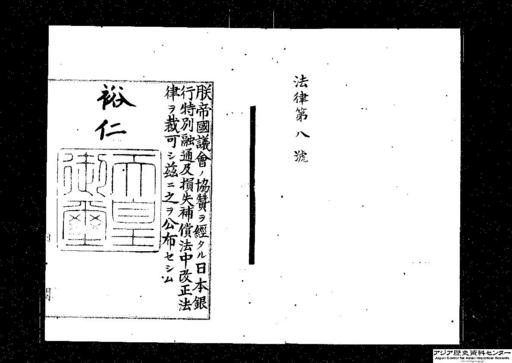 法律第八號
朕帝國議會ノ協贊ヲ經タル日本銀
行特別融通及損失補償法中改正法
律ヲ裁可シ茲ニ之ヲ公布セシム
裕仁
天皇
御璽
アジア歴史資料センター
Japan Center for Asian Historical Records